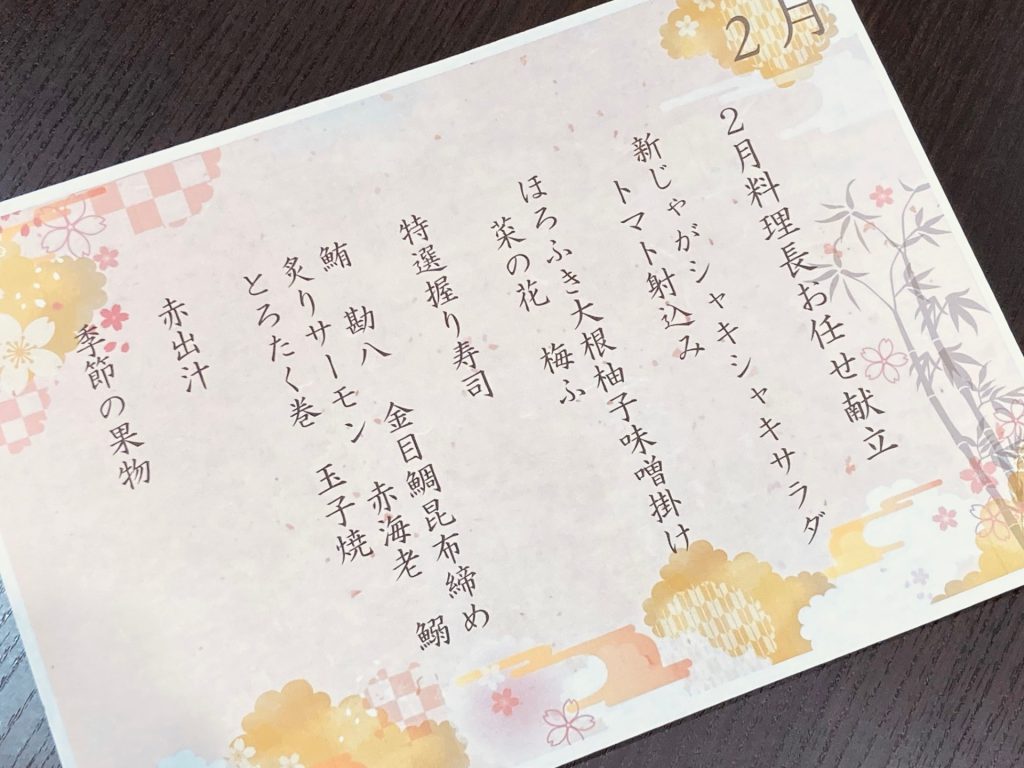 2月
2月料理長お任せ献立
新じゃがシャキシャキサラダ
トマト射込み
ほろふき大根柚子味噌掛け
菜の花　梅ふ
特選握り寿司
鮪　勘八　金目鯛昆布締め
炙りサーモン　赤海老　鰯
とろたく巻　玉子焼
赤出汁
季節の果物